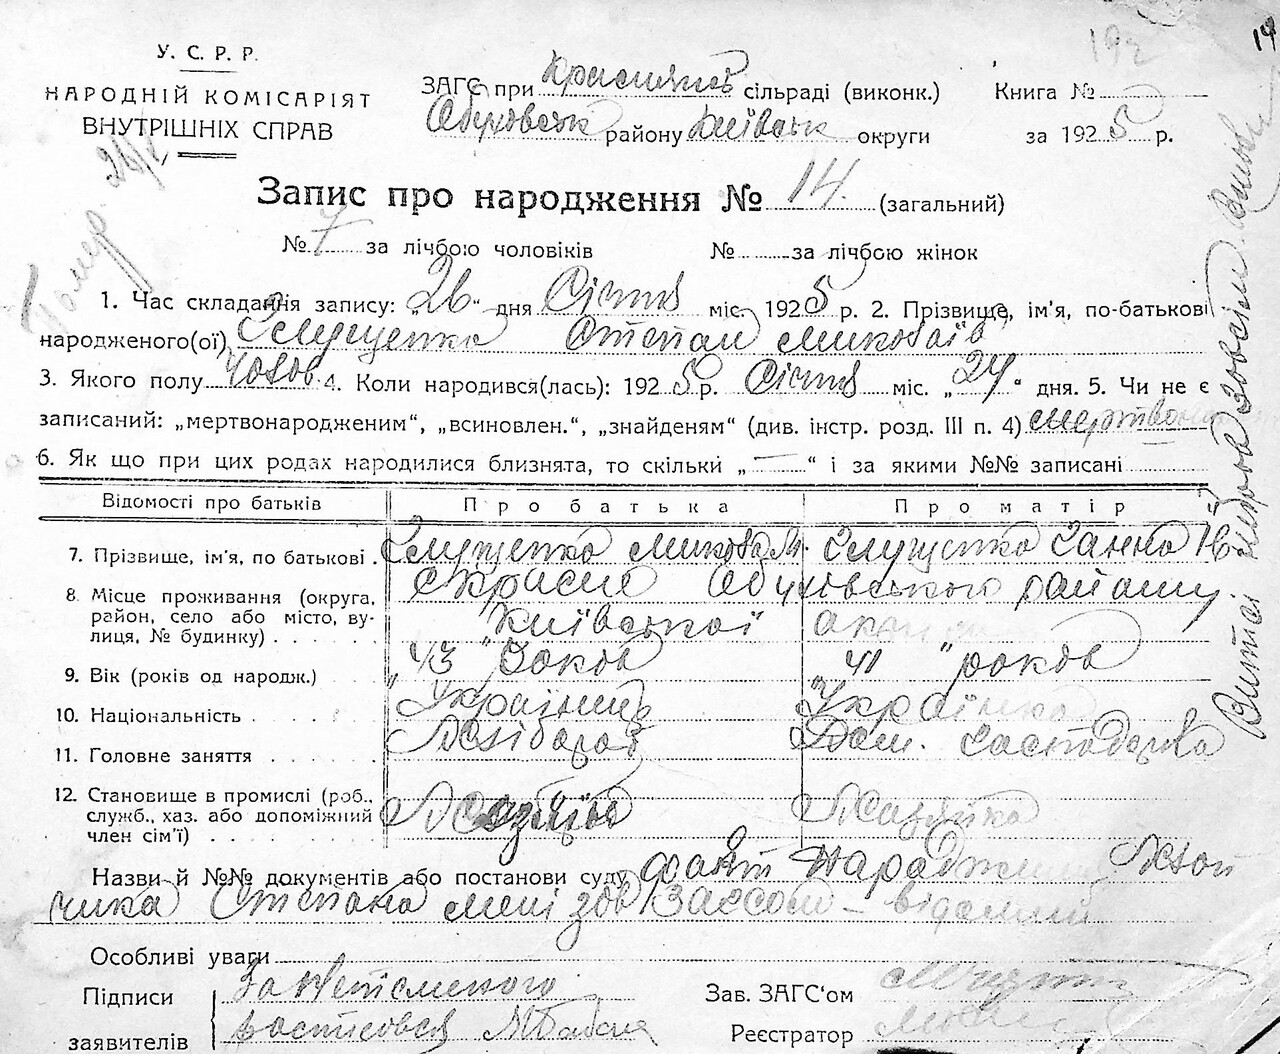 14
192
У. С. Р. Р.
НАРОДНІЙ КОМІСАРІЯТ
ВНУТРІШНІХ СПРАВ
ЗАГС при сільраді (виконк.) Книга №
Обуховськ району Київськ округи за 1925 р.
Помер
Запис про народження № 14. (загальний)
№ 7 за лічбою чоловіків № за лічбою жінок
1. Час складання запису: „26“ дня Січня міс. 1925 р. 2. Прізвище, ім'я, по-батькові
народженого(ої) Глущенко Степан Микол
3. Якого полу Чолов. 4. Коли народився(лась): 1925 р. Січня міс. „24“ дня. 5. Чи не є
записаний: „мертвонародженим“, „всиновлен.“, „знайденям“ (див. інстр. розд. III п. 4)
6. Як що при цих родах народилися близнята, то скільки „—“ і за якими №№ записані
Відомості про батьків Про батька Про матір
7. Прізвище, ім'я, по батькові . Глущенко Микола Глущенко Ганна
8. Місце проживання (округа, район, село або місто, вулиця, № будинку) . . . . . Обуховського району
Київської
9. Вік (років од народж.) „43“ років „41“ років
10. Національність . . . . Українець Українка
11. Головне заняття . . . . . Хлібороб Дом. Господарка
12. Становище в промислі (роб., служб., хаз. або допоміжний член сім'ї) . . . . . . . Хазяїн Хазяйка
Назви й №№ документів або постанови суду факт народження Хлоп
чика Степана мені зав Загсом – відомий
Особливі уваги
Підписи За неписьменого Зав. ЗАГС'ом
заявителів Реєстратор